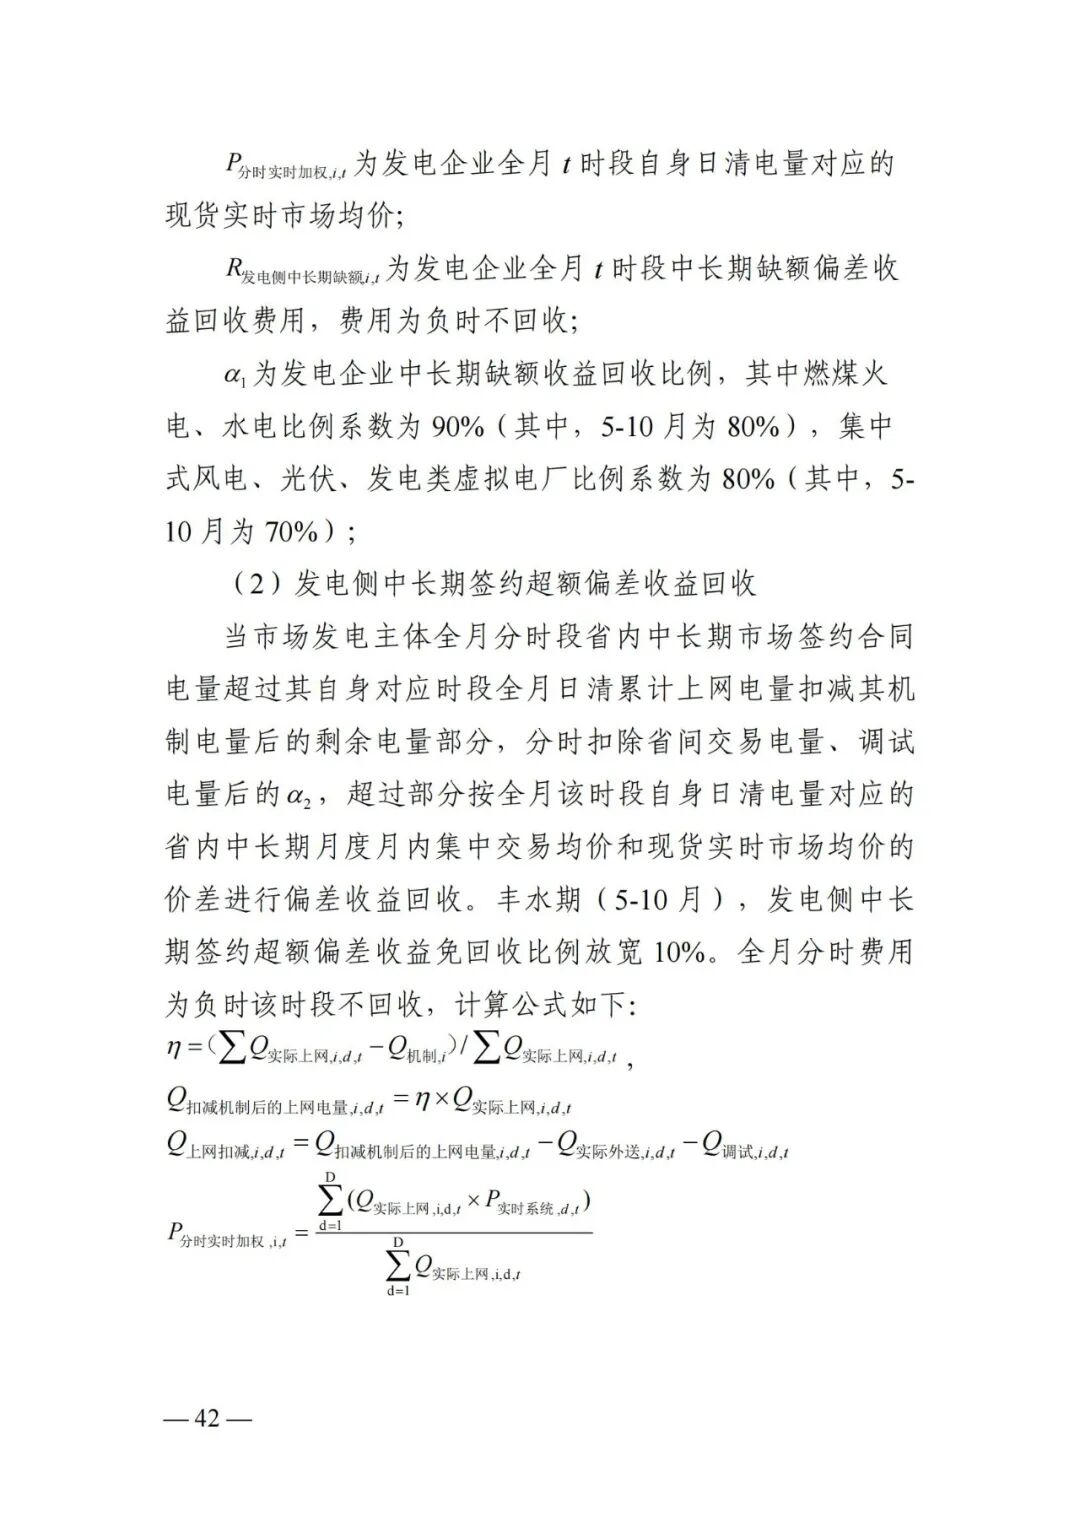 P分时实时加权,i,t 为发电企业全月 t 时段自身日清电量对应的
现货实时市场均价;
R发电侧中长期缺额,i,t 为发电企业全月 t 时段中长期缺额偏差收
益回收费用，费用为负时不回收;
α1为发电企业中长期缺额收益回收比例，其中燃煤火
电、水电比例系数为 90%（其中，5-10 月为 80%），集中
式风电、光伏、发电类虚拟电厂比例系数为 80%（其中，5-
10 月为 70%）;
（2）发电侧中长期签约超额偏差收益回收
当市场发电主体全月分时段省内中长期市场签约合同
电量超过其自身对应时段全月日清累计上网电量扣减其机
制电量后的剩余电量部分，分时扣除省间交易电量、调试
电量后的α2，超过部分按全月该时段自身日清电量对应的
省内中长期月度月内集中交易均价和现货实时市场均价的
价差进行偏差收益回收。丰水期（5-10 月），发电侧中长
期签约超额偏差收益免回收比例放宽 10%。全月分时费用
为负时该时段不回收，计算公式如下:
η=(∑Q实际上网,i,d,t−Q机制,i)/∑Q实际上网,i,d,t，
Q扣减机制后的上网电量,i,d,t=η×Q实际上网,i,d,t
Q上网扣减,i,d,t=Q扣减机制后的上网电量,i,d,t−Q实际外送,i,d,t−Q调试,i,d,t
P分时实时加权,i,t=∑(d=1→D)(Q实际上网,i,d,t×P实时系统,d,t)/∑(d=1→D)Q实际上网,i,d,t
— 42 —